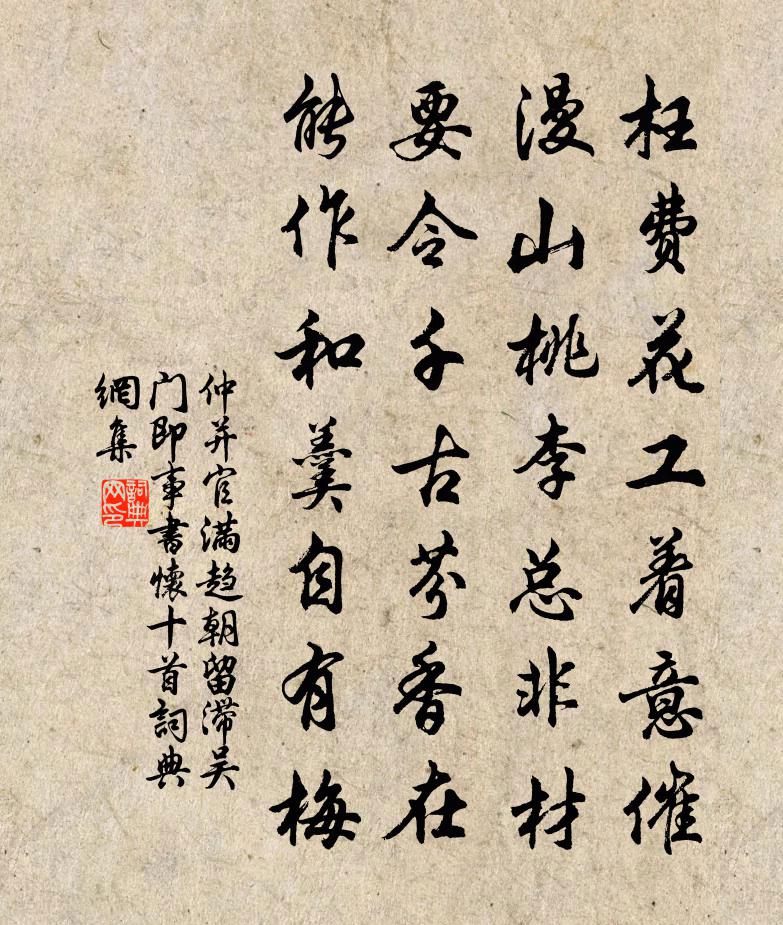 枉费花工着意催
漫山桃李总非材
要令千古芬香在
能作和羹自有梅
仲并官满趋朝留滞吴
门即事书懷十首詞典
網集
詞典
网印